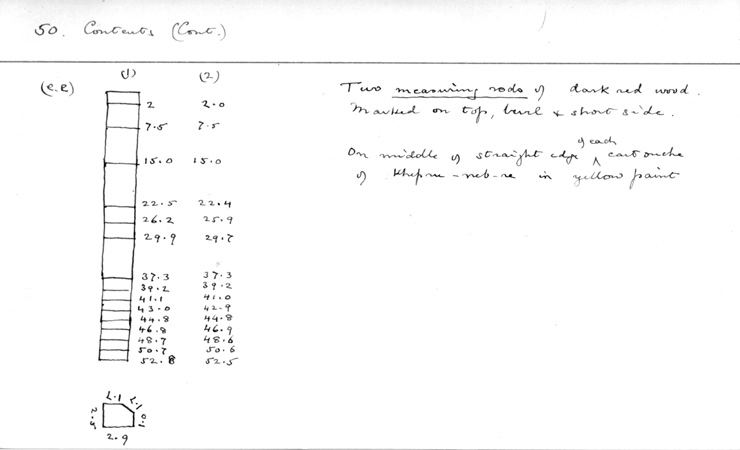 50. Contents (Cont.)
(e.e) (1) (2)
Two measuring rods of dark red wood.
Marked on top, bevel & short side.
On middle of straight edge of each cartouche
of Khepru-neb-re in yellow paint
2 2.0
7.5 7.5
15.0 15.0
22.5 22.4
26.2 25.9
29.9 29.7
37.3 37.3
39.2 39.2
41.1 41.0
43.0 42.9
44.8 44.8
46.8 46.9
48.7 48.6
50.7 50.6
52.8 52.5
2.9